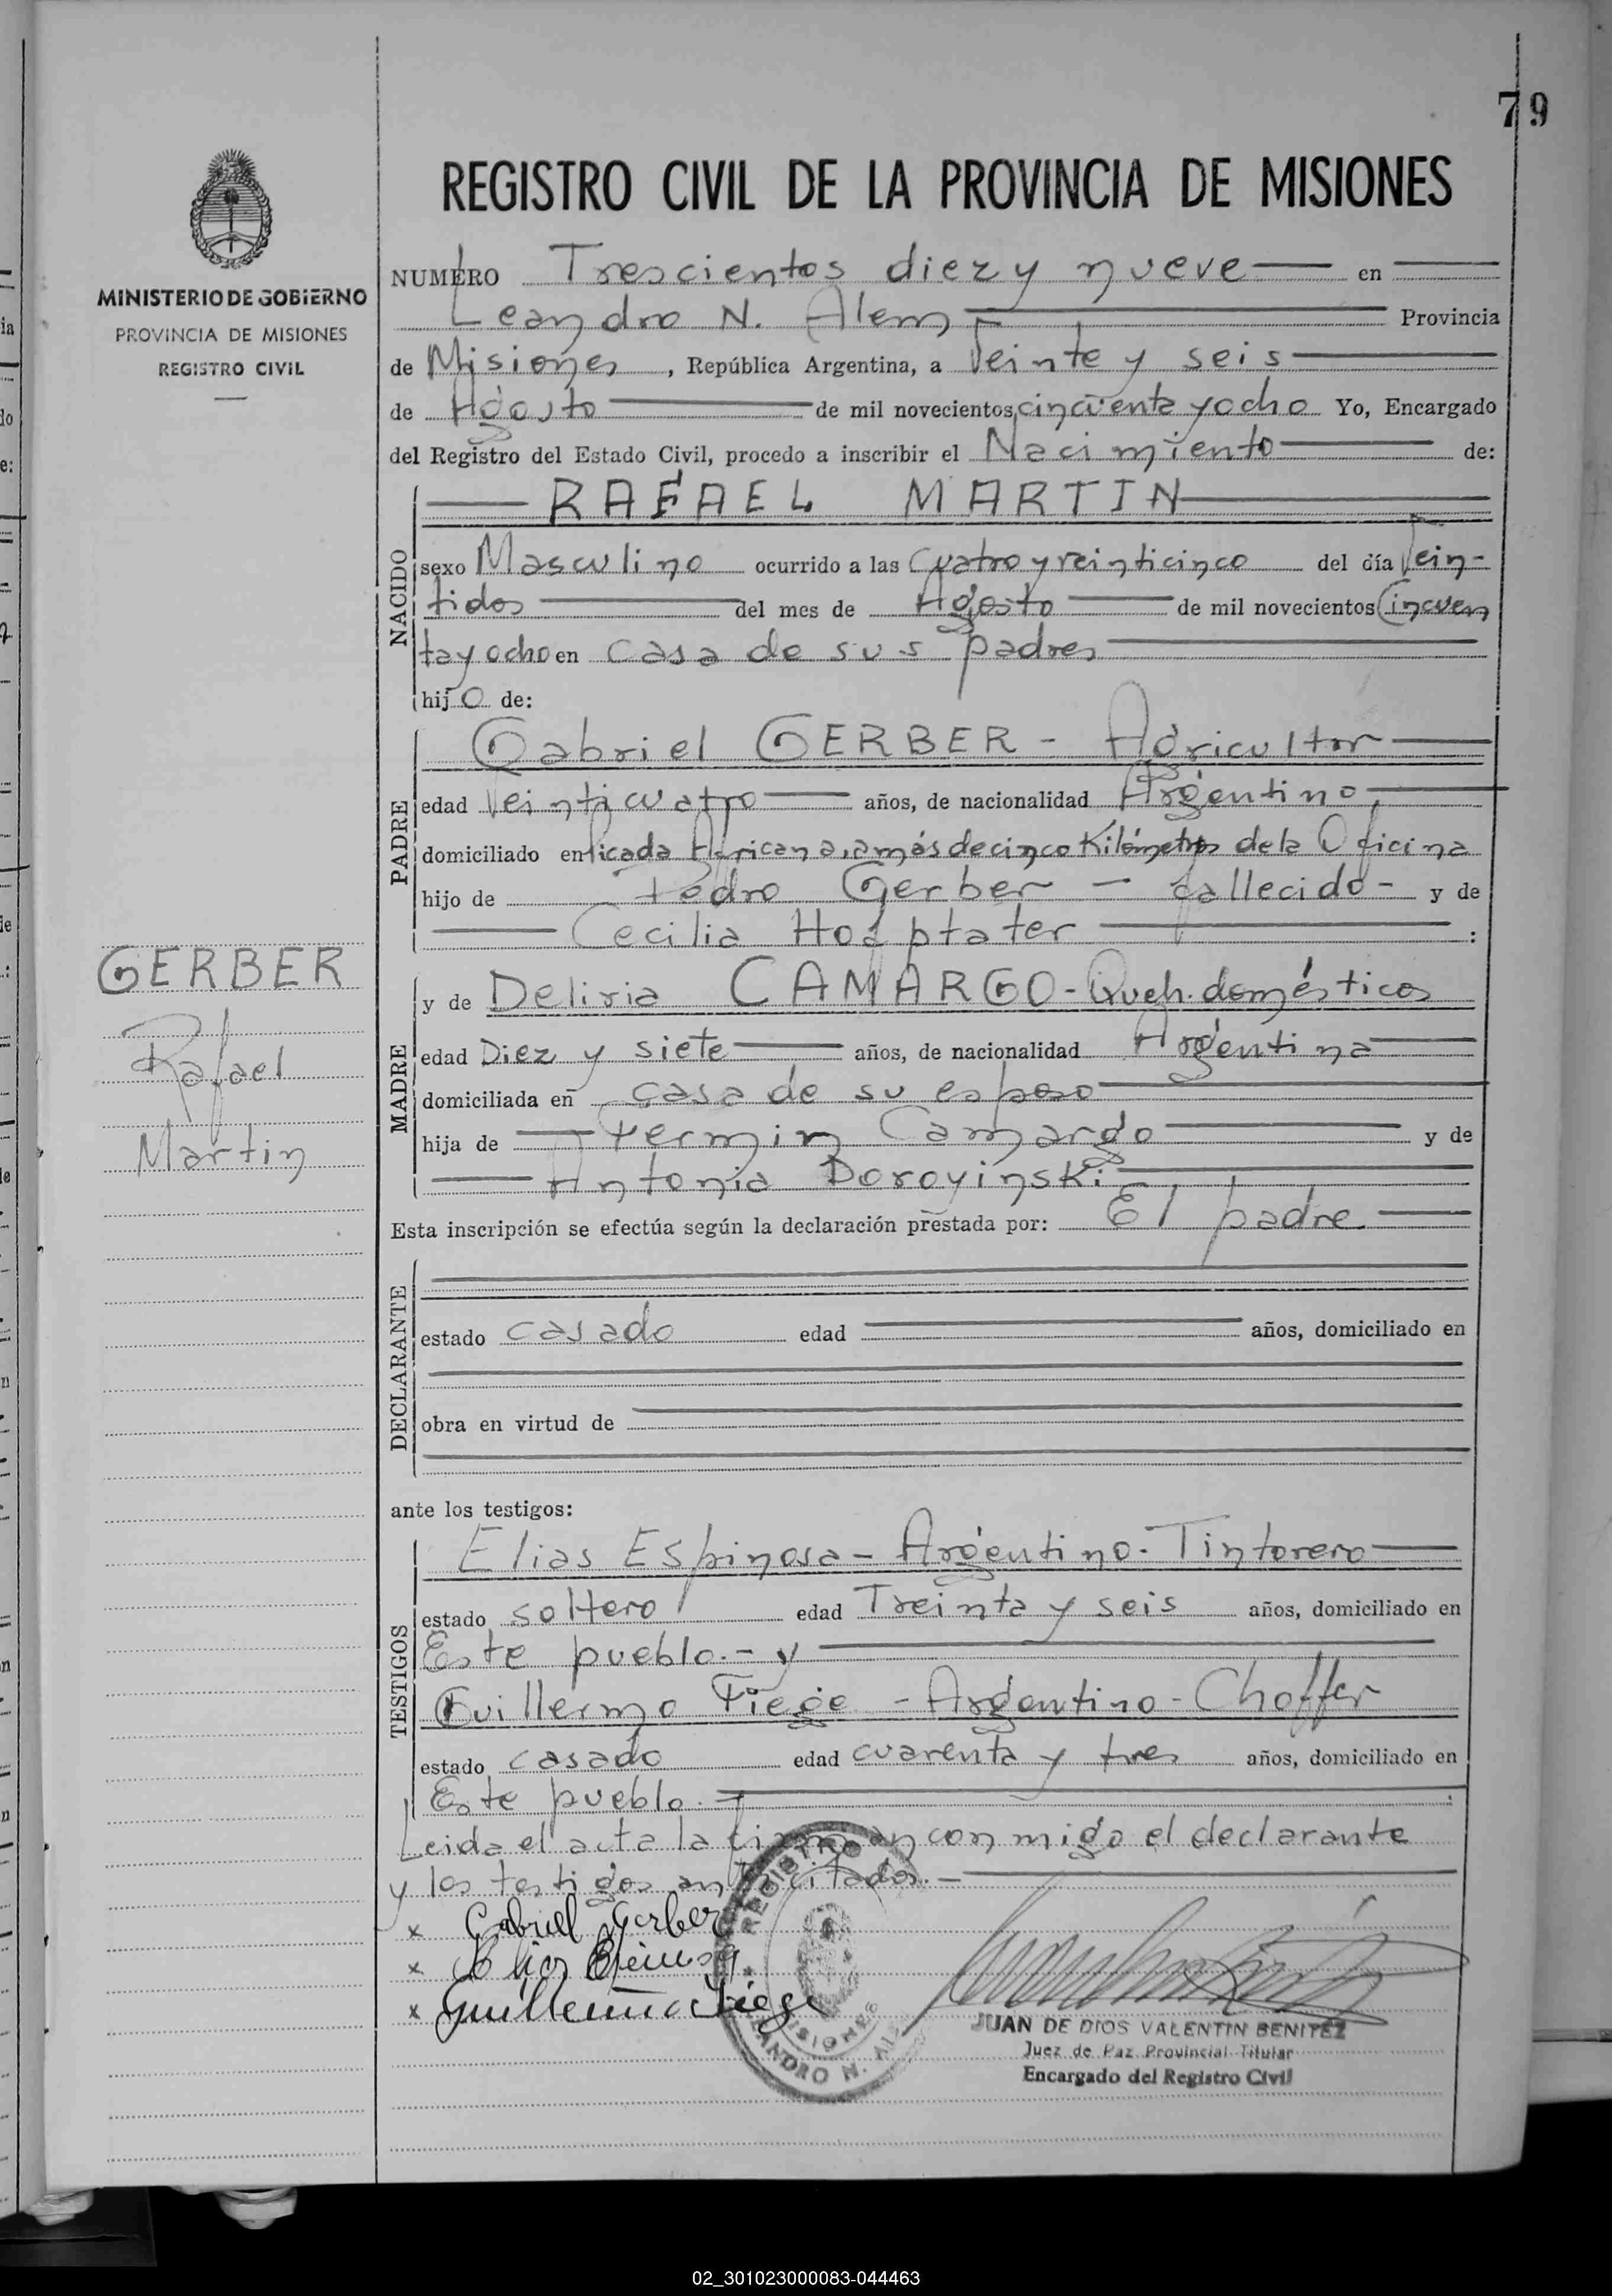 79
REGISTRO CIVIL DE LA PROVINCIA DE MISIONES
MINISTERIO DE GOBIERNO
PROVINCIA DE MISIONES
REGISTRO CIVIL
NUMERO Trescientos diez y nueve en
Leandro N. Alem Provincia
de Misiones, República Argentina, a Veinte y seis
de Agosto de mil novecientos cincuenta y ocho Yo, Encargado
del Registro del Estado Civil, procedo a inscribir el Nacimiento de:
RAFAEL MARTIN
NACIDO
sexo Masculino ocurrido a las Cuatro y veinticinco del día Vein-
tidos del mes de Agosto de mil novecientos Cincuen
ta y ocho en casa de sus padres
hijo de:
Gabriel GERBER - Agricultor
PADRE
edad Veinticuatro años, de nacionalidad Argentino,
domiciliado en Picada Africana, a más de cinco Kilómetros de la Oficina
hijo de Pedro Gerber - fallecido - y de
Cecilia :
GERBER
Rafael
Martin
y de Deliria CAMARGO - Queh. domésticos
MADRE
edad Diez y siete años, de nacionalidad Argentina
domiciliada en casa de su esposo
hija de Fermin Camargo y de
Antonia
Esta inscripción se efectúa según la declaración prestada por: El padre
DECLARANTE
estado casado edad años, domiciliado en
obra en virtud de
ante los testigos:
TESTIGOS
Elias Espinosa - Argentino - Tintorero
estado soltero edad Treinta y seis años, domiciliado en
Este pueblo. - y
Guillermo Fiege - Argentino - Choffer
estado casado edad cuarenta y tres años, domiciliado en
Este pueblo.
Leida el acta la firman con migo el declarante
y los testigos antes citados. -
x Gabriel Gerber
x Elias Espinosa
x Guillermo Fiege
REGISTRO
MISIONES
LEANDRO N. ALEM
JUAN DE DIOS VALENTIN BENITEZ
Juez de Paz Provincial Titular
Encargado del Registro Civil
02_301023000083-044463